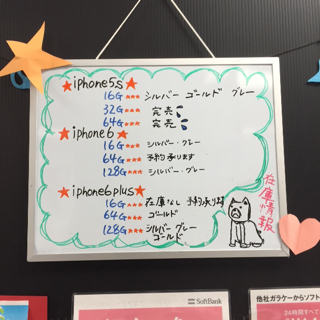 ★iphone5s★
16G★★★ シルバー ゴールド グレー
32G★★★ 完売
64G★★★ 完売
★iphone6★
16G★★★ シルバー・グレー
64G★★★ 予約承ります
128G★★★ シルバー・グレー
★iphone6plus★
16G★★★ 在庫なし 予約承ります
64G★★★ ゴールド
128G★★★ シルバー グレー
ゴールド
在庫情報
SoftBank
他社ガラケーからソフト
24時間すべて